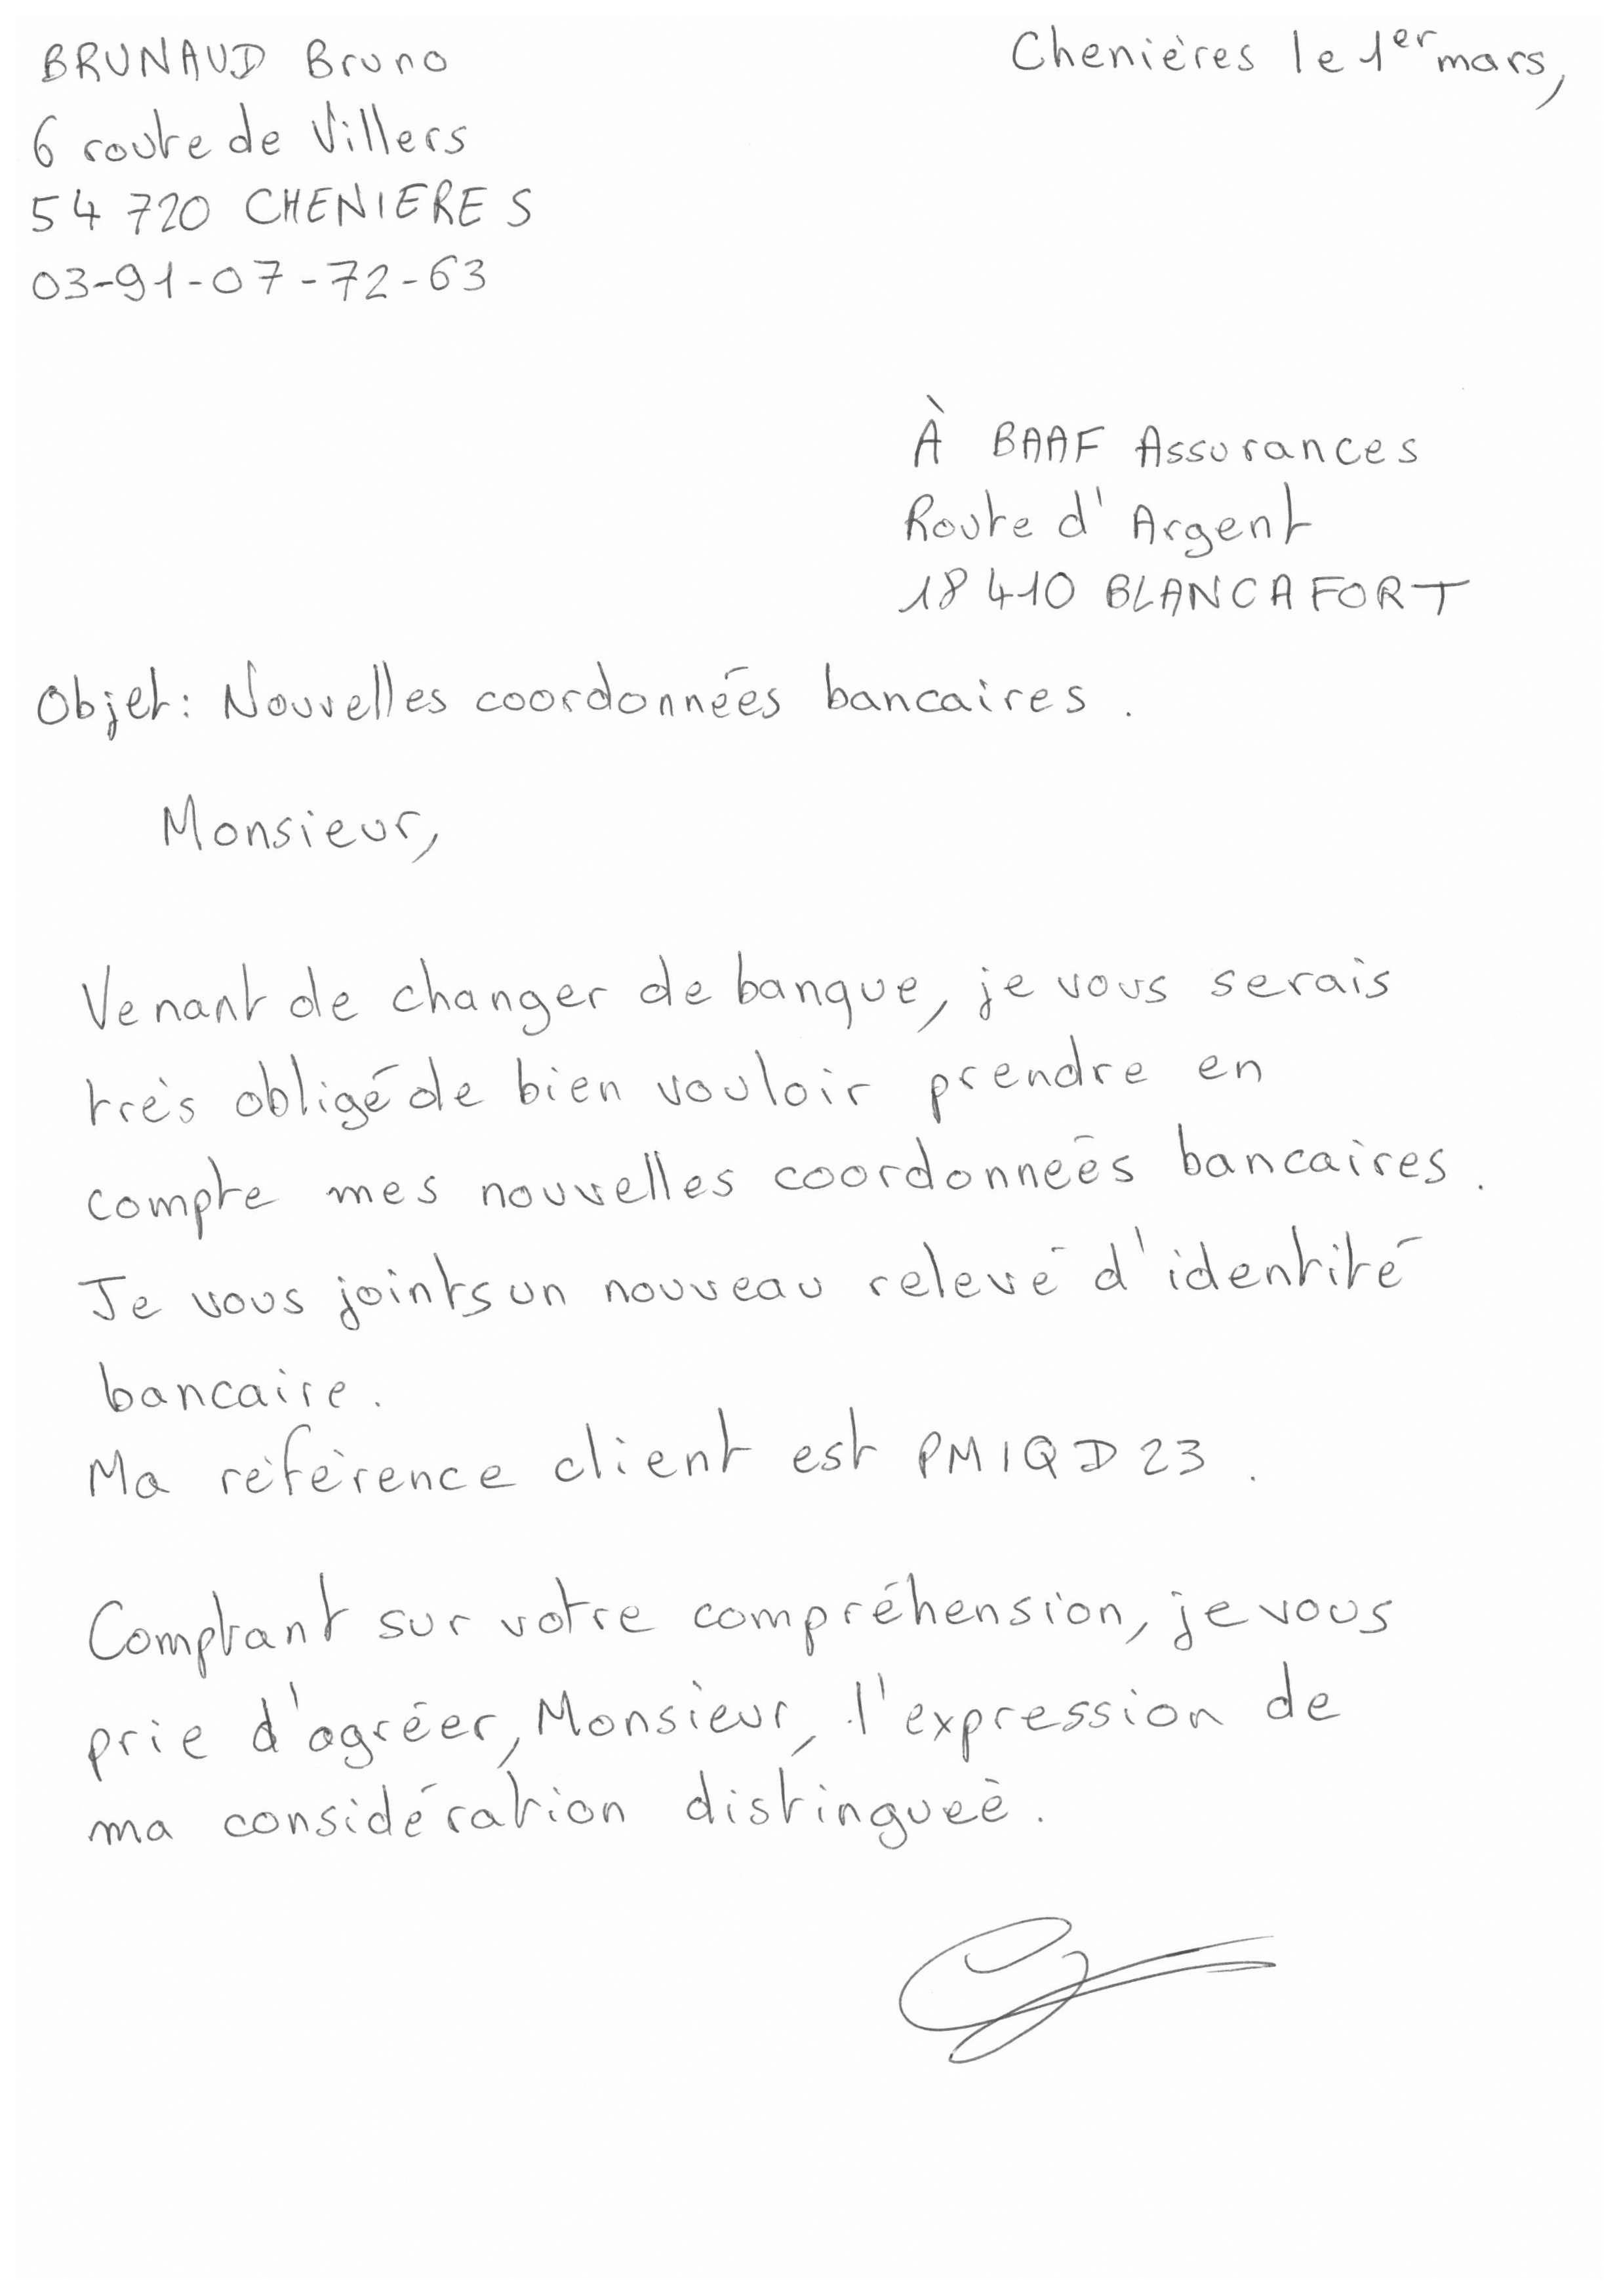 BRUNAUD Bruno
Chenières le 1er mars,
6 route de Villers
54 720 CHENIERES
03-91-07-72-63
À BAAF Assurances
Route d'Argent
18 410 BLANCAFORT
Objet: Nouvelles coordonnées bancaires.
Monsieur,
Venant de changer de banque, je vous serais
très obligé de bien vouloir prendre en
compte mes nouvelles coordonnées bancaires.
Je vous joints un nouveau relevé d'identité
bancaire.
Ma référence client est PMIQD23.
Comptant sur votre compréhension, je vous
prie d'agréer, Monsieur, l'expression de
ma considération distinguée.